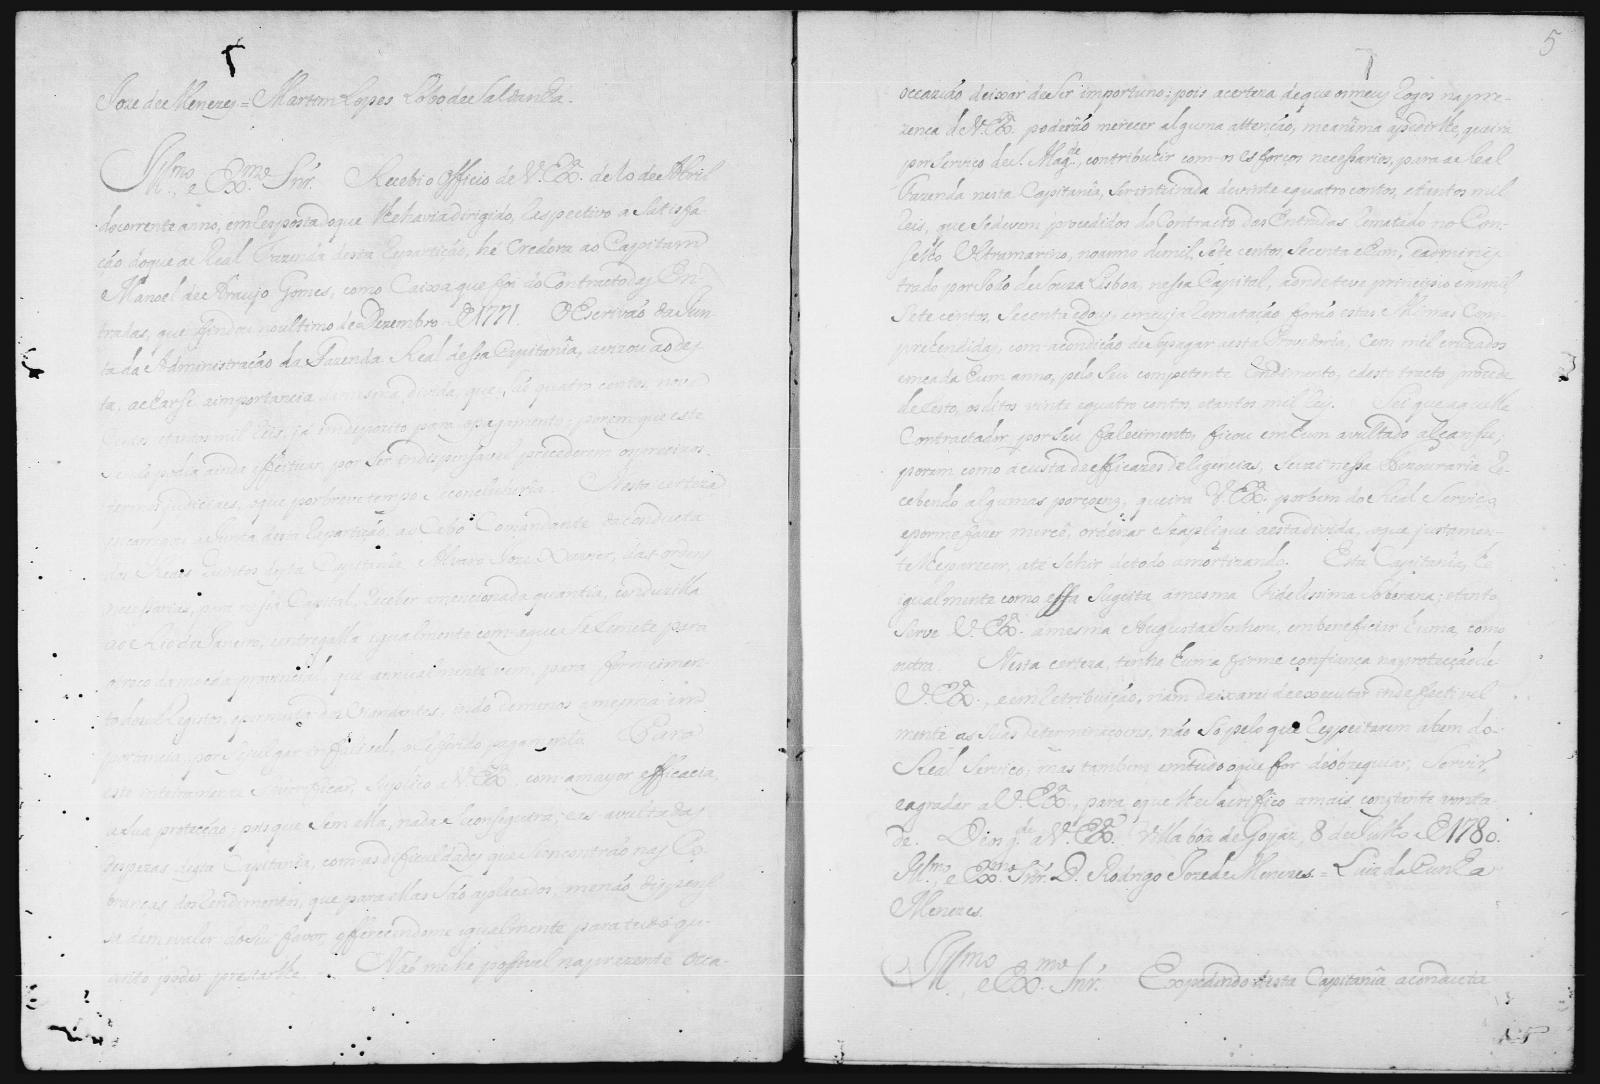 Joze de Menezes = Martim Lopes Lobo de Saldanha.
Ill.mo e Ex.mo Snr. Recebi o officio de V. Ex.a de 10 de Abril
do corrente anno, em resposta do que lhe havia dirigido, respectivo a satisfa-
ção do que a Real Fazenda desta Repartição, he credora ao Capitam
Manoel de Araujo Gomes, como Caixa que foi do Contracto das En-
tradas, que findou no ultimo de Dezembro de 1771. O Escrivão da Jun-
ta da Administração da Fazenda Real dessa Capitania, avizou ao des-
ta, acharse a importancia da mesma divida, que he quatro contos, nove
centos e tantos mil reis, já em deposito para o pagamento; porem que este
se não podia ainda effeituar, por ser indispensavel precederem os precizos
termos judiciaes, o que por breve tempo se concluhiria. Nesta certeza
encarregou a Junta desta Repartição, ao Cabo Comandante da conducta
dos Reaes Quintos desta Capitania Alvaro Joze Xavier, das ordens
necessarias, para nessa Capital receber a mencionada quantia, conduzilla
ao Rio de Janeiro, entregalla igualmente com a que se remete para
o troco da moeda provincial, que annualmente vem, para fornecimen-
to dos Registos, e permuta dos Viandantes, indo de menos a mesma im-
portancia, por se julgar infalivel, o referido pagamento. Para
este inteiramente se verificar, suplico a V. Ex.a com a mayor efficacia,
a sua protecção; pois que sem ella, nada se conseguirá; e as avultadas
despezas desta Capitania, com as dificuldades que se encontrão nas Co-
branças dos rendimentos, que para ellas são aplicados, me não dispen-
sa de me valer do seu favor, offerecendome igualmente para tudo quanto
poder prestarlhe. Não me he possivel na prezente occa-
5
occazião deixar de ser importuno: pois a certeza de que os meus rogos na pre-
zença de V. Ex.a poderão merecer alguma attenção, me anima a pedirlhe, queira
por serviço de S. Mag.de, contribuir com os esforços necessarios, para a Real
Fazenda nesta Capitania, ser inteirada de vinte e quatro contos, e tantos mil
reis, que se devem procedidos do Contracto das Entradas rematado no Con-
selho Ultramarino, no anno de mil, sete centos, secenta e hum, e adminis-
trado por João de Souza Lisboa, nessa Capital, aonde teve principio em mil
sete centos, secenta e dous, em cuja rematação forão estas Minas Com-
prehendidas, com a condição de se pagar a esta Provedoria, Cem mil cruzados
em cada hum anno, pelo seu competente rendimento, e deste tracto procede
de resto, os ditos vinte e quatro contos, e tantos mil reis. Sei que aquelle
Contractador, por seu falecimento, ficou em hum avultado alcansse;
porem como á custa de efficazes deligencias, se vai nessa Thezouraria re-
cebendo algumas porçoens, queira V. Ex.a por bem do Real Serviço,
e por me fazer mercê, ordenar se aplique a esta divida, o que justamen-
te lhe parecer, até se hir de todo amortizando. Esta Capitania, he
igualmente como essa sugeita a mesma Fidelissima Soberana; e tanto
serve V. Ex.a a mesma Augusta Senhora, em beneficiar huma, como
outra. Nesta certeza, tenho huma firme confiança na protecção de
V. Ex.a, e em retribuição, não deixarei de executar indefectivel
mente as suas determinaçoens, não só pelo que respeitarem a bem do
Real Serviço; mas tambem em tudo o que for de obzequiar, Servir,
e agradar a V. Ex.a, para o que lhe sacrifico a mais constante vonta-
de. Deos g.de a V. Ex.a Villa boa de Goyaz, 8 de Julho de 1780.
Ill.mo e Ex.mo Snr. D. Rodrigo Joze de Menezes. = Luiz da Cunha
Menezes.
Ill.mo e Ex.mo Snr. Expedindo desta Capitania a conducta